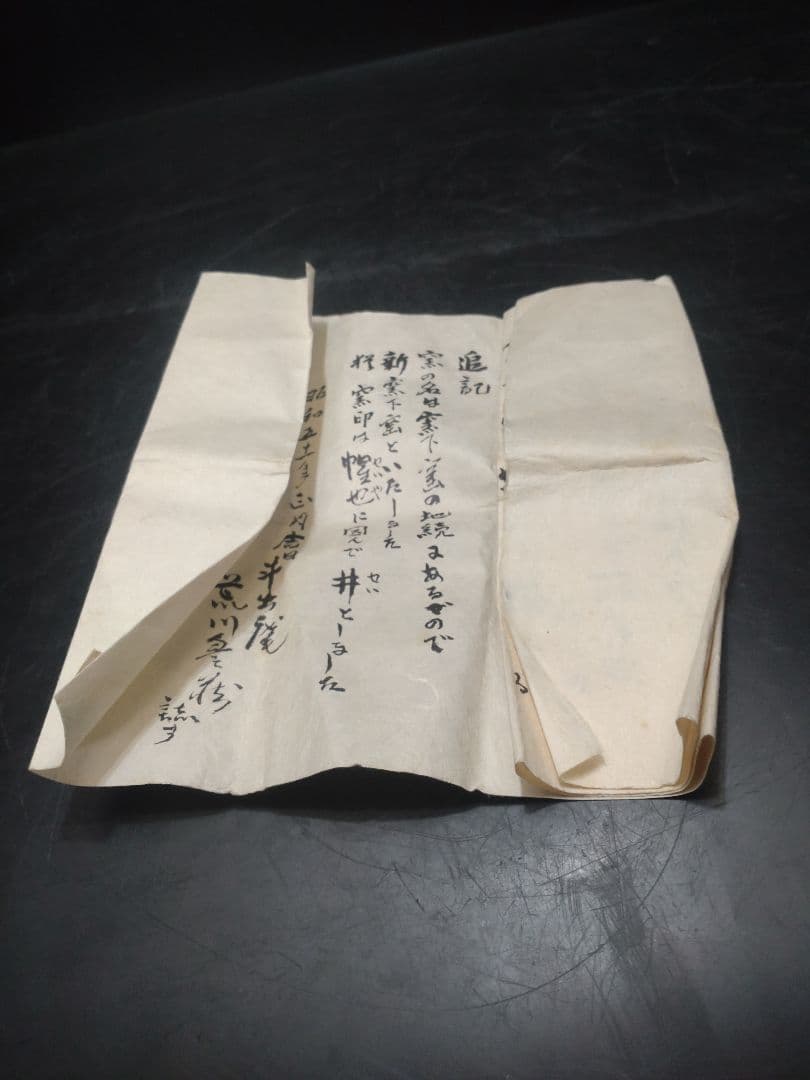 追記
窯の名は窯下窯の地続にあるがので
新窯下窯といたしました
窯印は 也に因んで 井としました
せいや
せい
昭和五十年正月
荒川豊蔵
誌す